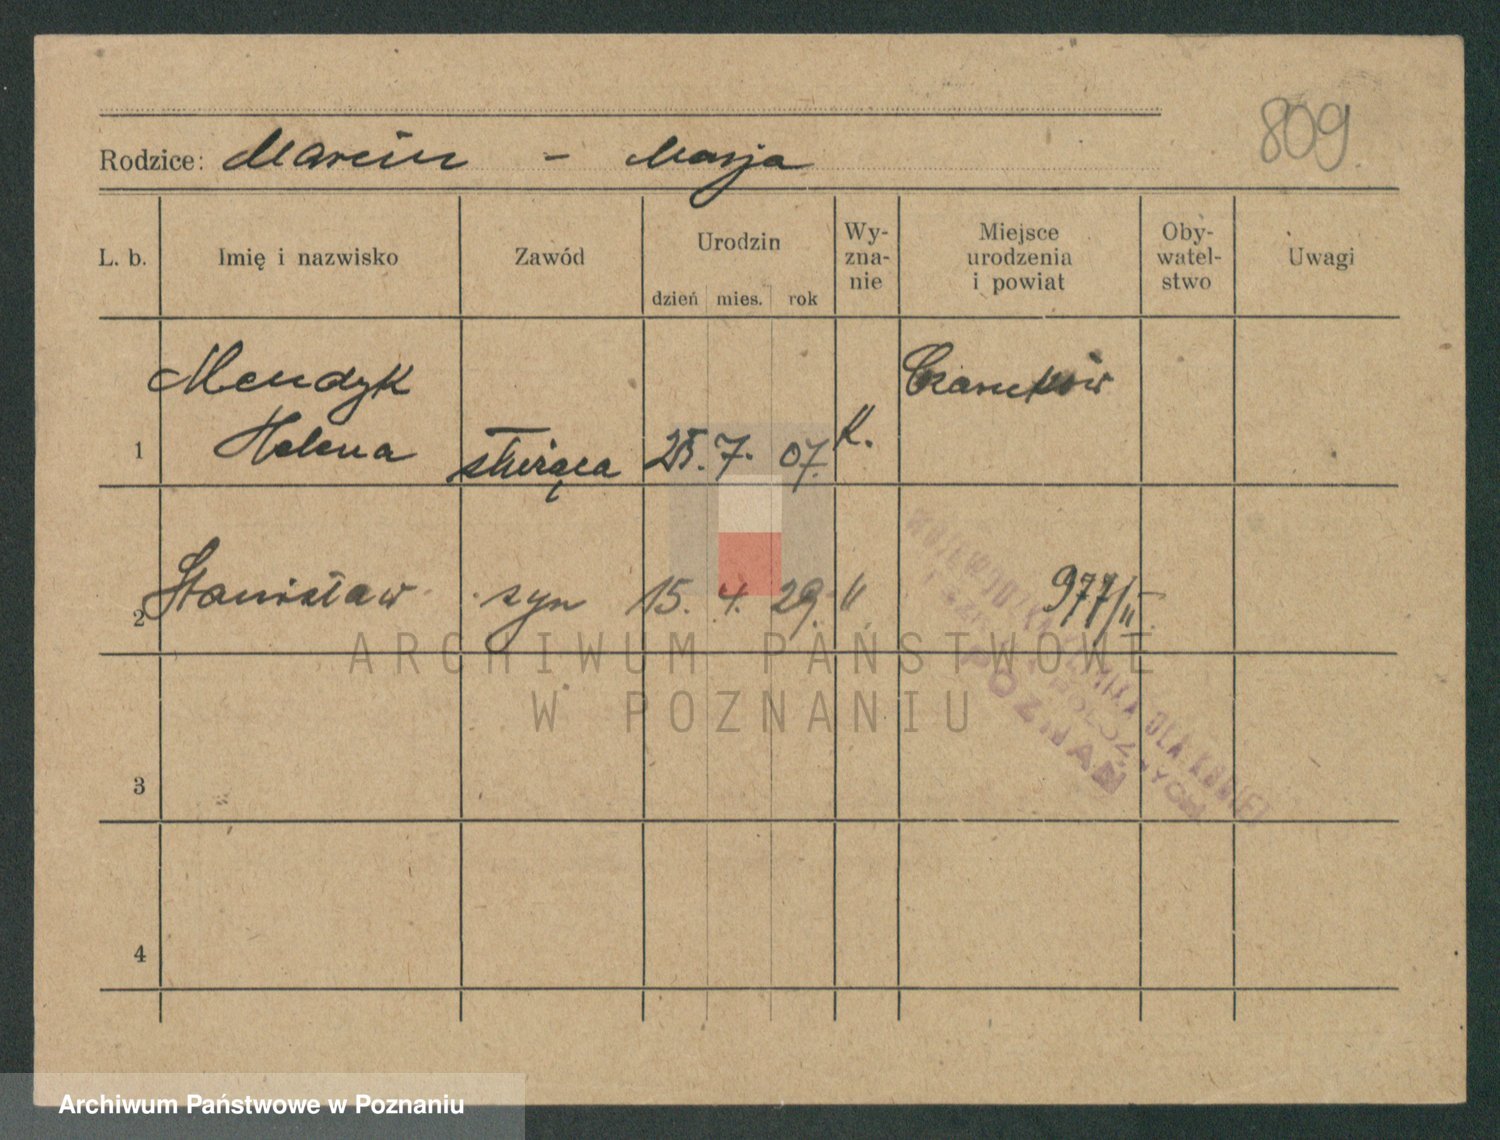 809.
Rodzice: Marcin - Marja
L. b.
Imię i nazwisko
Zawód
Urodzin
dzień mies. rok
Wy-
zna-
nie
Miejsce
urodzenia
i powiat
Oby-
watel-
stwo
Uwagi
Mendyk Czarnków
1 Helena służąca 7. 07. K.
2 Stanisław syn 15. 4. 29. " 977/II
WOJEWÓDZKA KLINIKA DLA KOBIET
POZNAŃ
3
4
ARCHIWUM PAŃSTWOWE
W POZNANIU
Archiwum Państwowe w Poznaniu